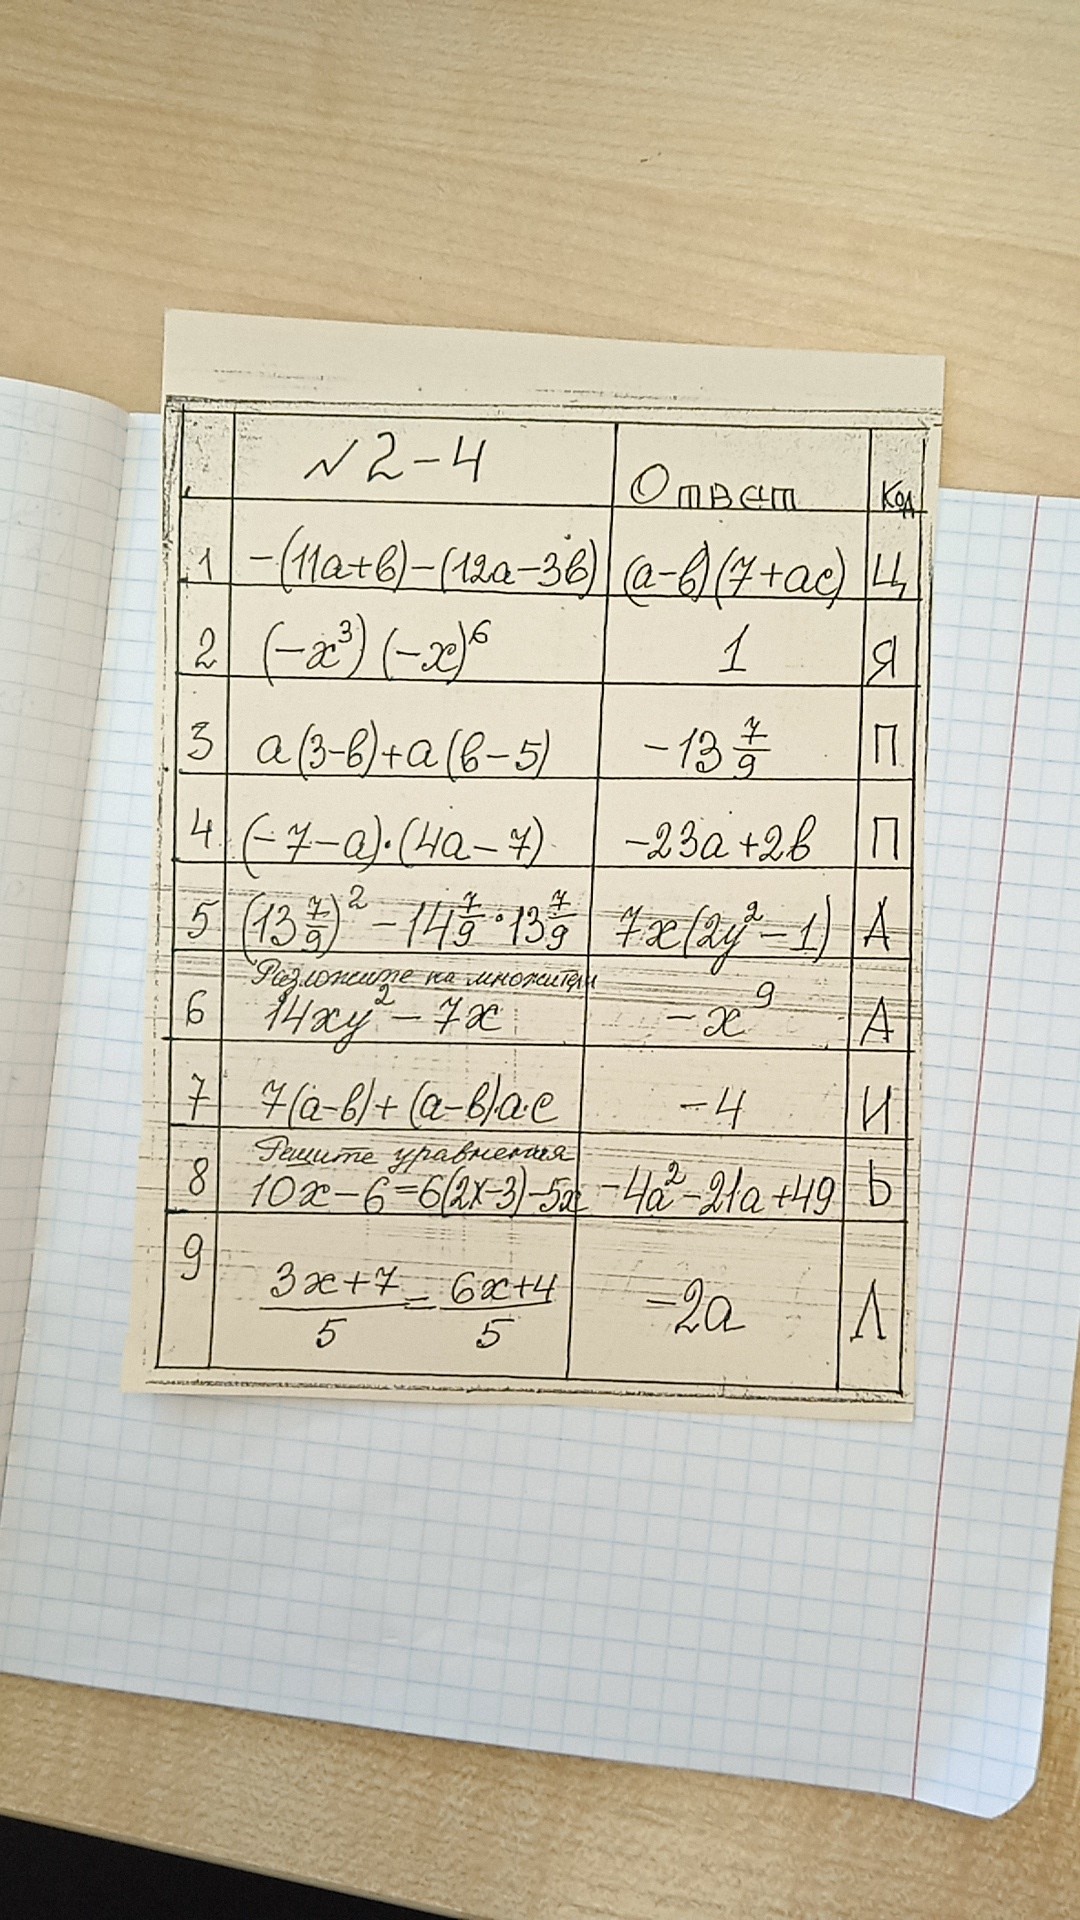 №2-4 Ответ Код
1 -(11a+b)-(12a-3b) (a-b)(7+ac) Ц
2 (-x³)(-x)⁶ 1 Я
3 a(3-b)+a(b-5) -13 7/9 П
4 (-7-a)·(4a-7) -23a+2b П
5 (13 7/9)² - 14 7/9 · 13 7/9 7x(2y²-1) А
Разложите на множители
6 14xy² - 7x -x⁹ А
7 7(a-b)+(a-b)a·c -4 И
Решите уравнения
8 10x-6=6(2x-3)-5x -4a²-21a+49 Ь
9 (3x+7)/5 = (6x+4)/5 -2a Л